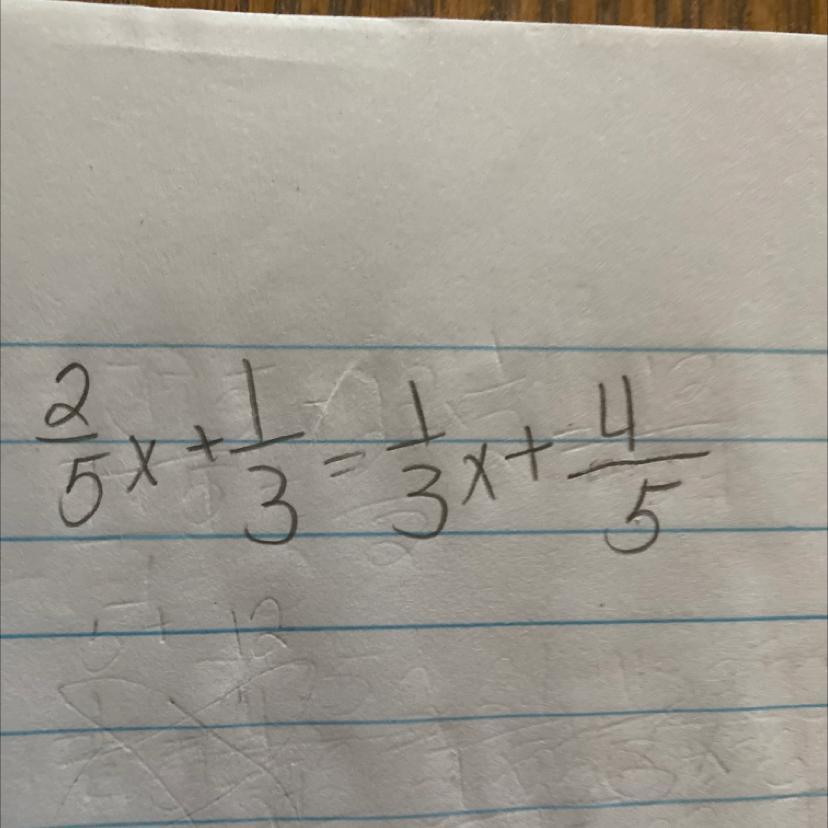 2/5 x + 1/3 = 1/3 x + 4/5